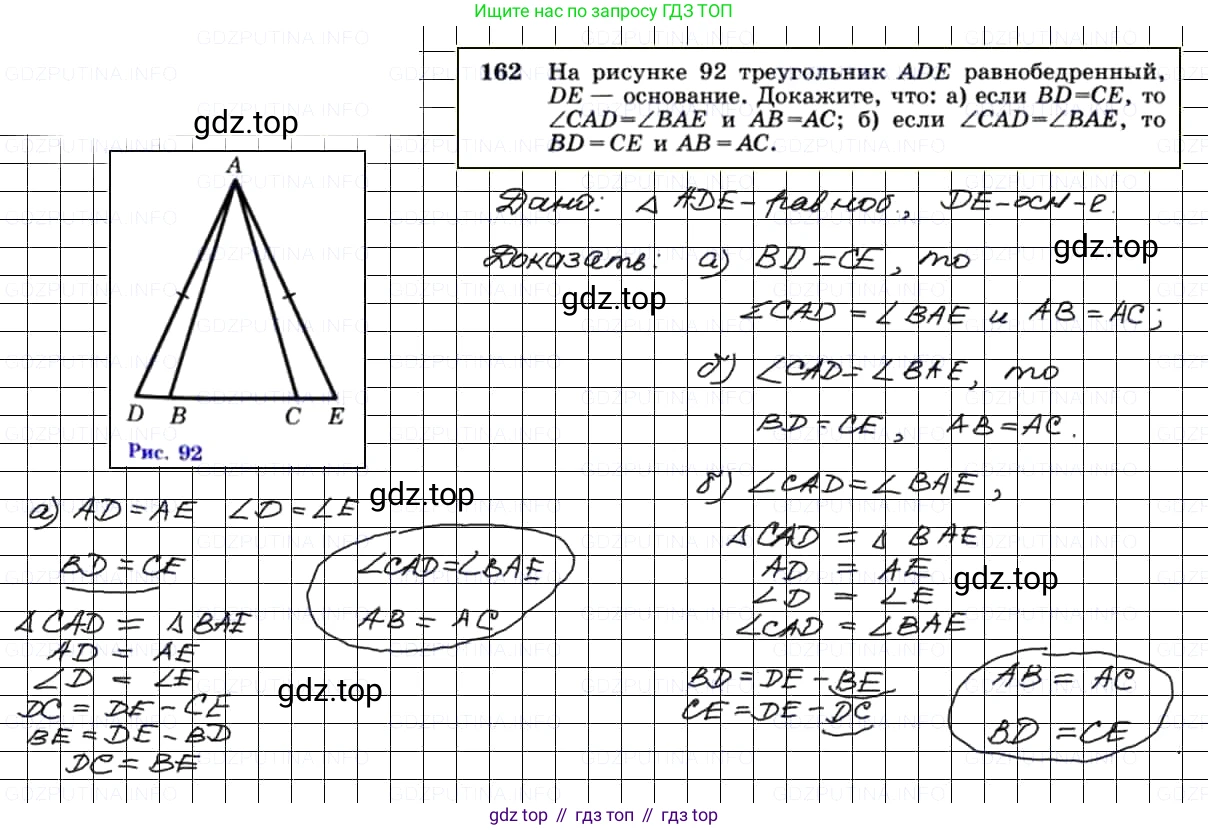 Ищите нас по запросу ГДЗ ТОП
162 На рисунке 92 треугольник ADE равнобедренный,
DE — основание. Докажите, что: а) если BD=CE, то
∠CAD=∠BAE и AB=AC; б) если ∠CAD=∠BAE, то
BD=CE и AB=AC.
gdz.top
A
D B C E
Рис. 92
Дано: △ ADE - равноб., DE-осн-е.
gdz.top
Доказать: а) BD = CE, то
gdz.top
∠CAD = ∠BAE и AB = AC;
б) ∠CAD = ∠BAE, то
BD = CE, AB = AC.
а) AD = AE ∠D = ∠E
gdz.top
BD = CE
∠CAD = ∠BAE
AB = AC
△ CAD = △ BAE
AD = AE
∠D = ∠E
gdz.top
DC = DE - CE
BE = DE - BD
DC = BE
б) ∠CAD = ∠BAE,
△ CAD = △ BAE
AD = AE
gdz.top
∠D = ∠E
∠CAD = ∠BAE
BD = DE - BE
CE = DE - DC
AB = AC
BD = CE
gdz top // гдз топ // gdz top
GDZPUTINA.INFO